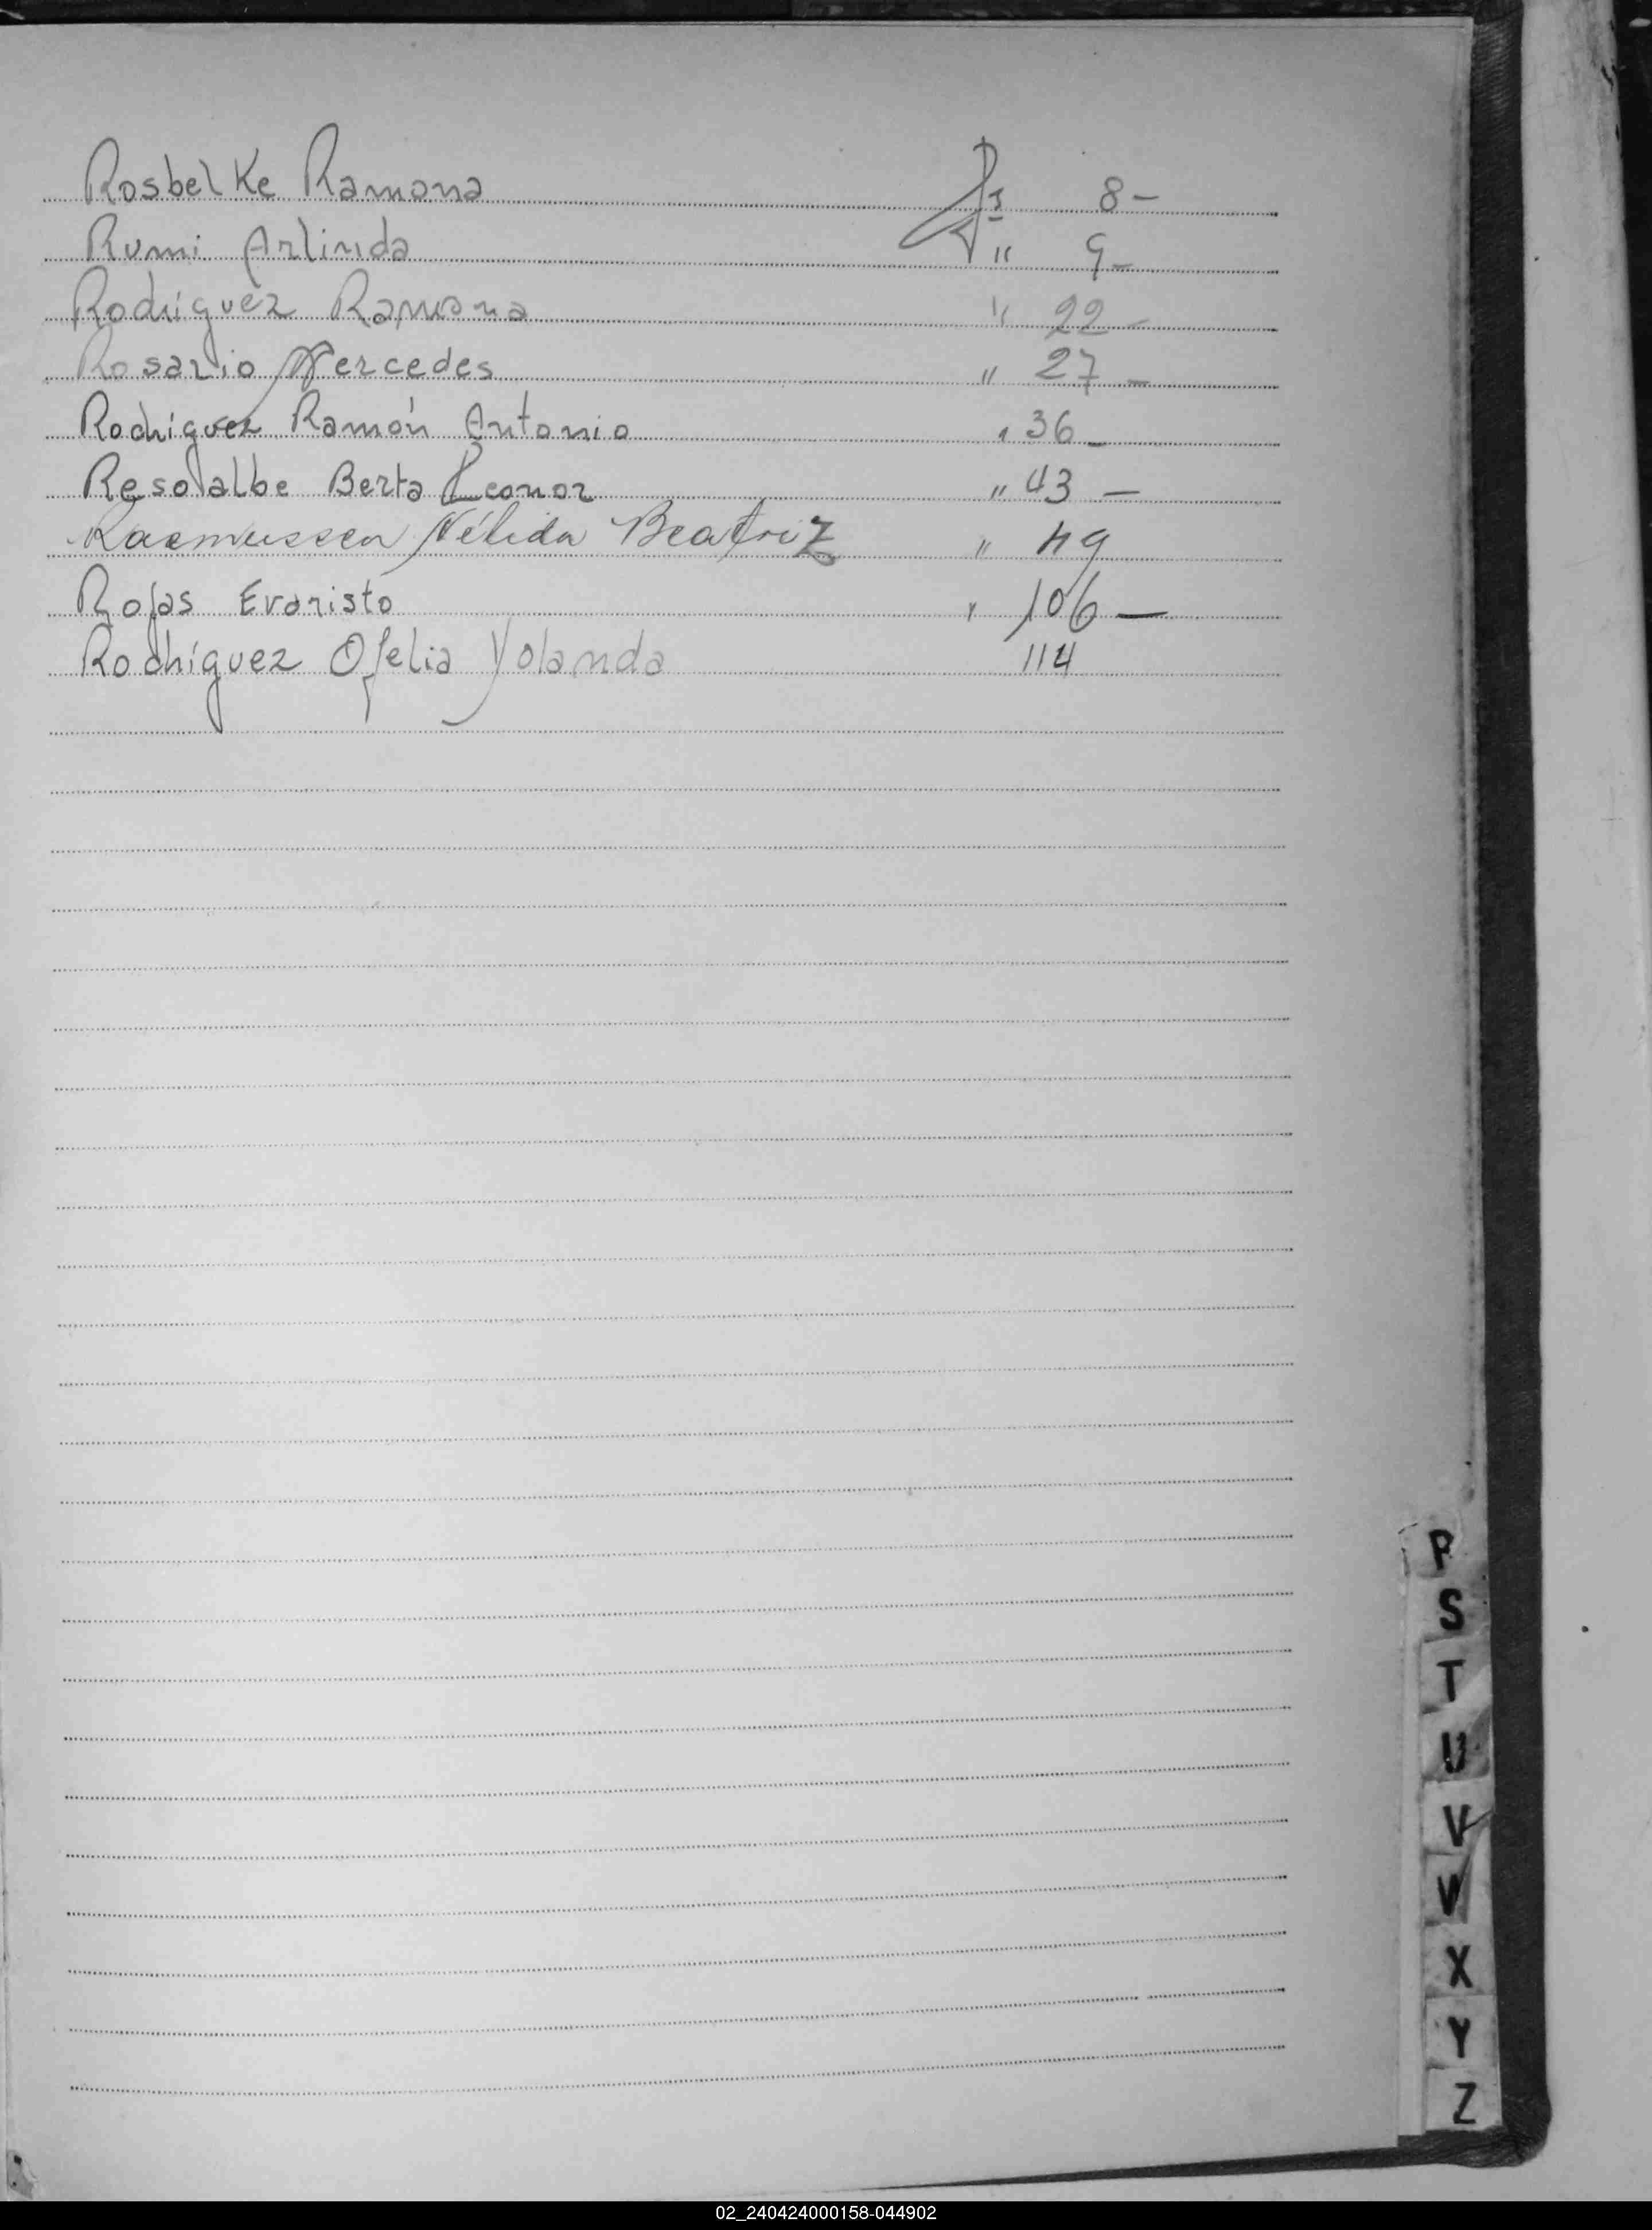 Rosbelke Ramona Fs 8 -
Rumi Arlinda " 9 -
Rodriguez Ramona " 22 -
Rosario Mercedes " 27 -
Rodriguez Ramón Antonio " 36 -
Resolalbe Berta Leonor " 43 -
Rasmussen Nélida Beatriz " 49
Rojas Evaristo " 106 -
Rodríguez Ofelia Yolanda 114
R
S
T
U
V
W
X
Y
Z
02_240424000158-044902